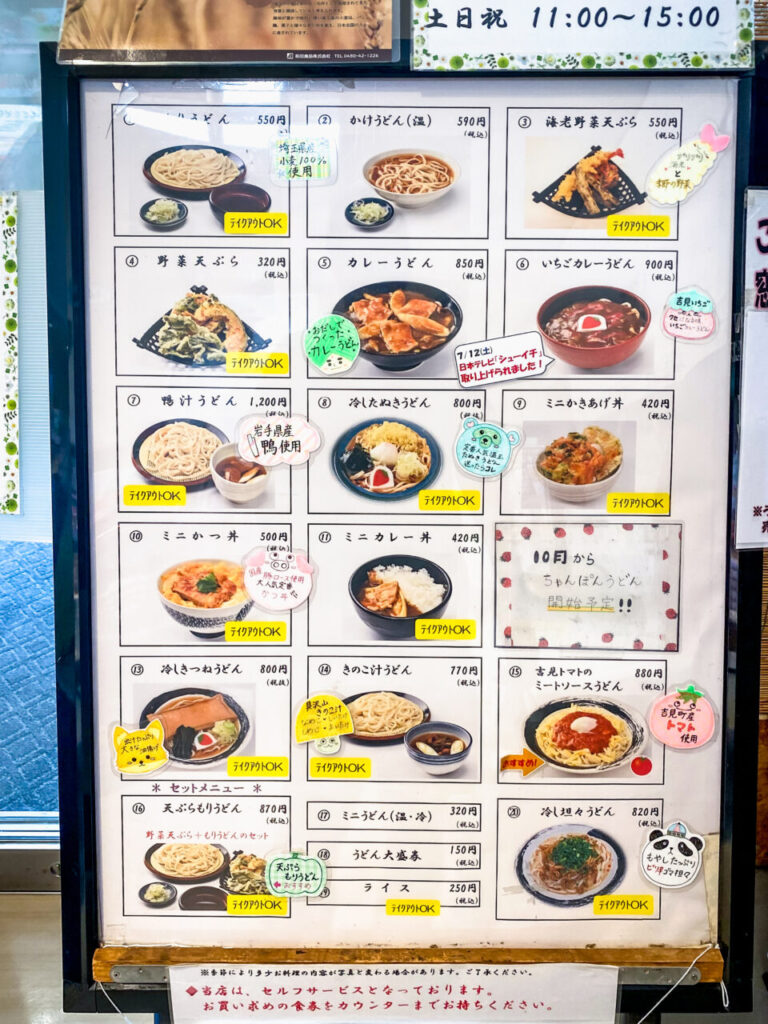 TEL 0480-42-1226
土日祝 11:00～15:00
りうどん 550円
埼玉県産
小麦100%
使用
テイクアウトOK
② かけうどん(温) 590円
(税込)
③ 海老野菜天ぷら 550円
(税込)
と
季節の野菜
テイクアウトOK
④ 野菜天ぷら 320円
(税込)
テイクアウトOK
⑤ カレーうどん 850円
(税込)
おだしで
つくった
カレーうどん
⑥ いちごカレーうどん 900円
(税込)
吉見いちご
いちごカレーうどん
7/12(土)
日本テレビ「シューイチ」
取り上げられました!
⑦ 鴨汁うどん 1,200円
(税込)
岩手県産
鴨使用
テイクアウトOK
⑧ 冷したぬきうどん 800円
定番人気温玉
たぬきうどん
迷ったらコレ
テイクアウトOK
⑨ ミニかきあげ丼 420円
(税込)
テイクアウトOK
⑩ ミニかつ丼 500円
(税込)
国産
豚ロース使用
大人気定番
かつ丼
テイクアウトOK
⑪ ミニカレー丼 420円
(税込)
テイクアウトOK
10月から
ちゃんぽんうどん
開始予定!!
⑬ 冷しきつねうどん 800円
(税抜)
大きな油揚げ
テイクアウトOK
⑭ きのこ汁うどん 770円
(税込)
きのこ汁
テイクアウトOK
⑮ 吉見トマトの
ミートソースうどん 880円
(税込)
おすすめ!
吉見町産
トマト
使用
＊ セットメニュー ＊
⑯ 天ぷらもりうどん 870円
(税込)
野菜天ぷら+もりうどんのセット
天ぷら
もりうどん
おすすめ
テイクアウトOK
⑰ ミニうどん(温・冷) 320円
(税込)
⑱ うどん大盛券 150円
(税込)
ライス 250円
(税込)
テイクアウトOK
⑳ 冷し坦々うどん 820円
(税込)
もやしたっぷり
ピリ辛ゴマ担々
テイクアウトOK
※季節により多少お料理の内容が写真と変わる場合があります。ご了承ください。
◆当店は、セルフサービスとなっております。
お買い求めの食券をカウンターまでお持ちください。